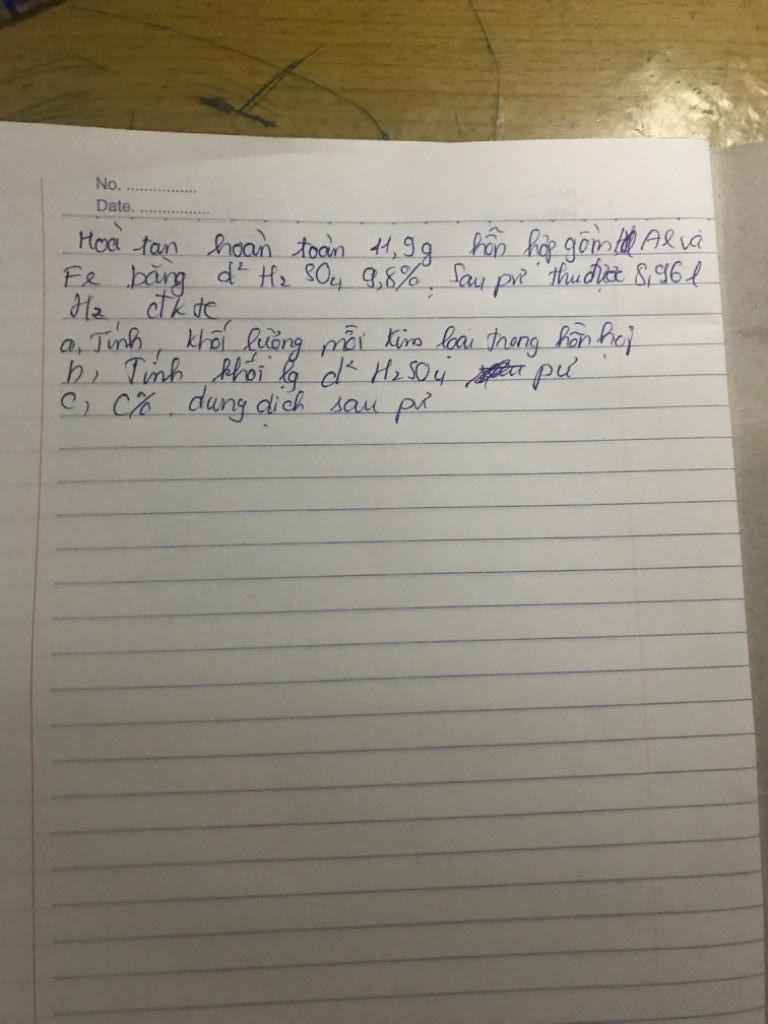 No. ................
Date. ................
Hoà tan hoàn toàn 11,9g hỗn hợp gồm Al và
Fe bằng d² H₂SO₄ 9,8%. Sau pư thu được 8,96 l
H₂ đktc
a, Tính khối lượng mỗi kim loại trong hỗn hợp
b, Tính khối lg d² H₂SO₄ pư
c, C% dung dịch sau pư